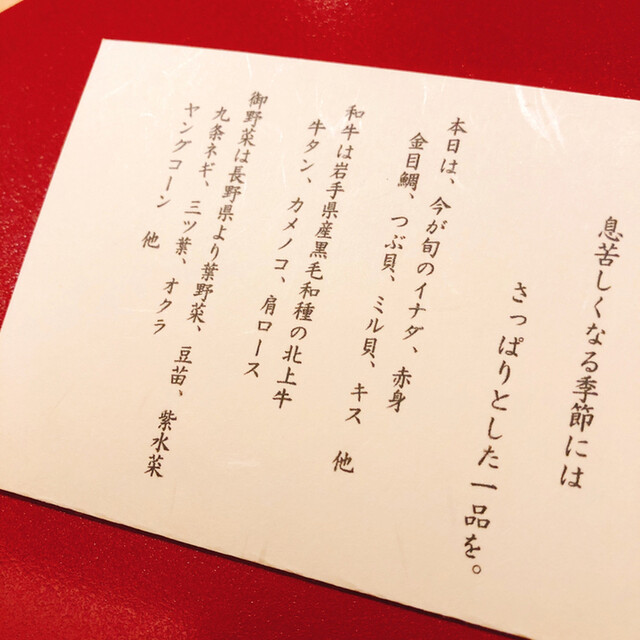 息苦しくなる季節には
さっぱりとした一品を。
本日は、今が旬のイナダ、赤身
金目鯛、つぶ貝、ミル貝、キス 他
和牛は岩手県産黒毛和種の北上牛
牛タン、カメノコ、肩ロース
御野菜は長野県より葉野菜、豆苗、紫水菜
九条ネギ、三ツ葉、オクラ
ヤングコーン 他